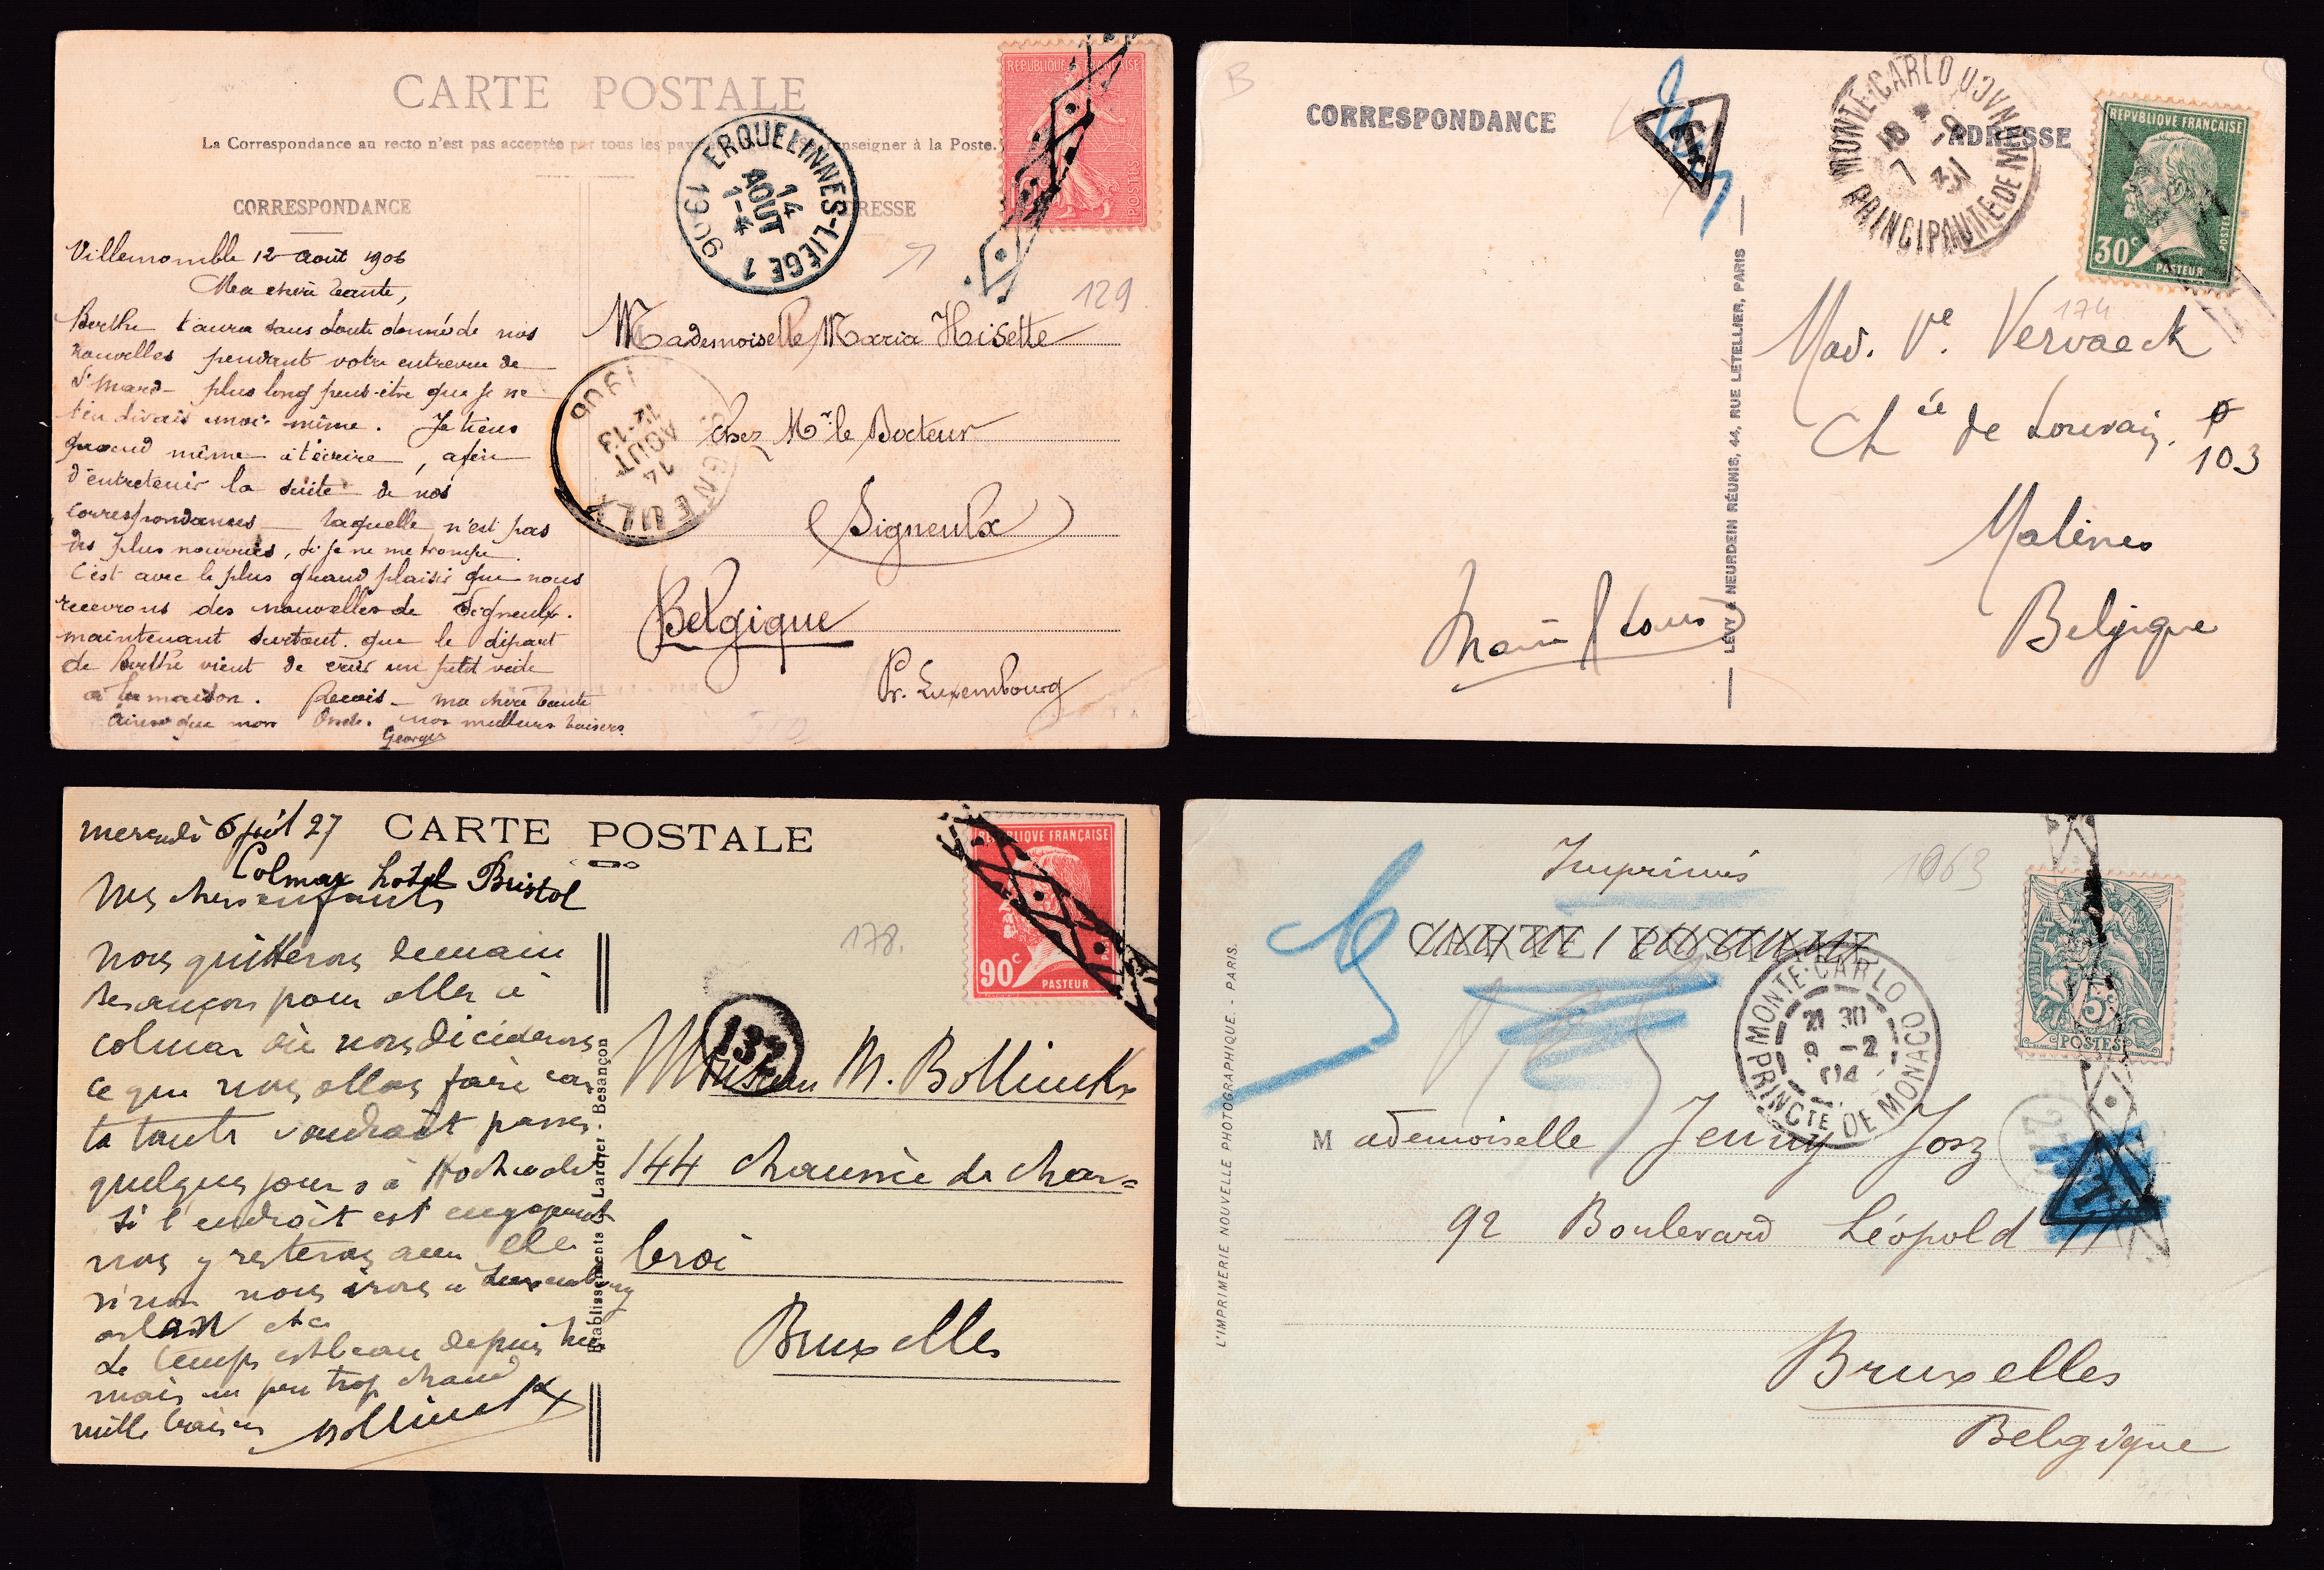 CARTE POSTALE
La Correspondance au recto n'est pas acceptée par tous les pays enseigner à la Poste.
CORRESPONDANCE
RESSE
REPUBLIQUE FRANÇAISE
POSTES
ERQUELINNES-LIÈGE 1
14
AOUT
7-*
1906
129
Villemomble 12 Août 1906
Ma chère tante,
Berthe t'aura sans doute donné de nos
nouvelles pendant votre entrevue de
St Mard - plus long peut-être que je ne
t'en dirais moi-même. Je tiens
quand même à t'écrire, afin
d'entretenir la suite de nos
correspondances laquelle n'est pas
des plus nourries, si je ne me trompe.
C'est avec le plus grand plaisir que nous
recevrons des nouvelles de Signeulx.
maintenant surtout que le départ
de Berthe vient de créer un petit vide
à la maison. Reçois - ma chère tante
ainsi que mon Oncle. nos meilleurs baisers
Georges
Mademoiselle Maria Hisette
chez Mr le Docteur
Signeulx
Belgique
Pr. Luxembourg
SIGNEULX
14
AOUT
12-13
1906
B
CORRESPONDANCE
T
MONTE-CARLO MONACO
PRINCIPAUTE DE M
18 * 
7 -9
31
ADRESSE
REPVBLIQVE FRANÇAISE
30c
PASTEUR
POSTES
174
Mad. Ve. Vervaeck
Chée de Louvain.
103
Malines
Belgique
LÉVY & NEURDEIN RÉUNIS, 44, RUE LETELLIER, PARIS
mercredi 6 juil 27
CARTE POSTALE
Colmar hotel Bristol
Mes chers enfants
nous quitterons demain
Besançon pour aller à
colmar où nous déciderons
ce que nous allons faire car
ta tante voudrait passer
quelques jours à
si l'endroit est engageant
nous y resterons avec elle
sinon nous irons à Luxembourg
arlon etc
Le temps est beau depuis hier
mais un peu trop chaud
mille baisers Bollinckx
Etablissements Lardier - Besançon
REPVBLIQVE FRANÇAISE
90c
PASTEUR
178.
137
M. Bollinckx
144 chaussée de Char=
leroi
Bruxelles
Imprimés
1063
CARTE POSTALE
MONTE-CARLO
PRINCTE DE MONACO
21 30
9 -2
04
5
POSTES
T
Mademoiselle Jenny Josz
92 Boulevard Léopold II
Bruxelles
Belgique
L'IMPRIMERIE NOUVELLE PHOTOGRAPHIQUE. - PARIS.